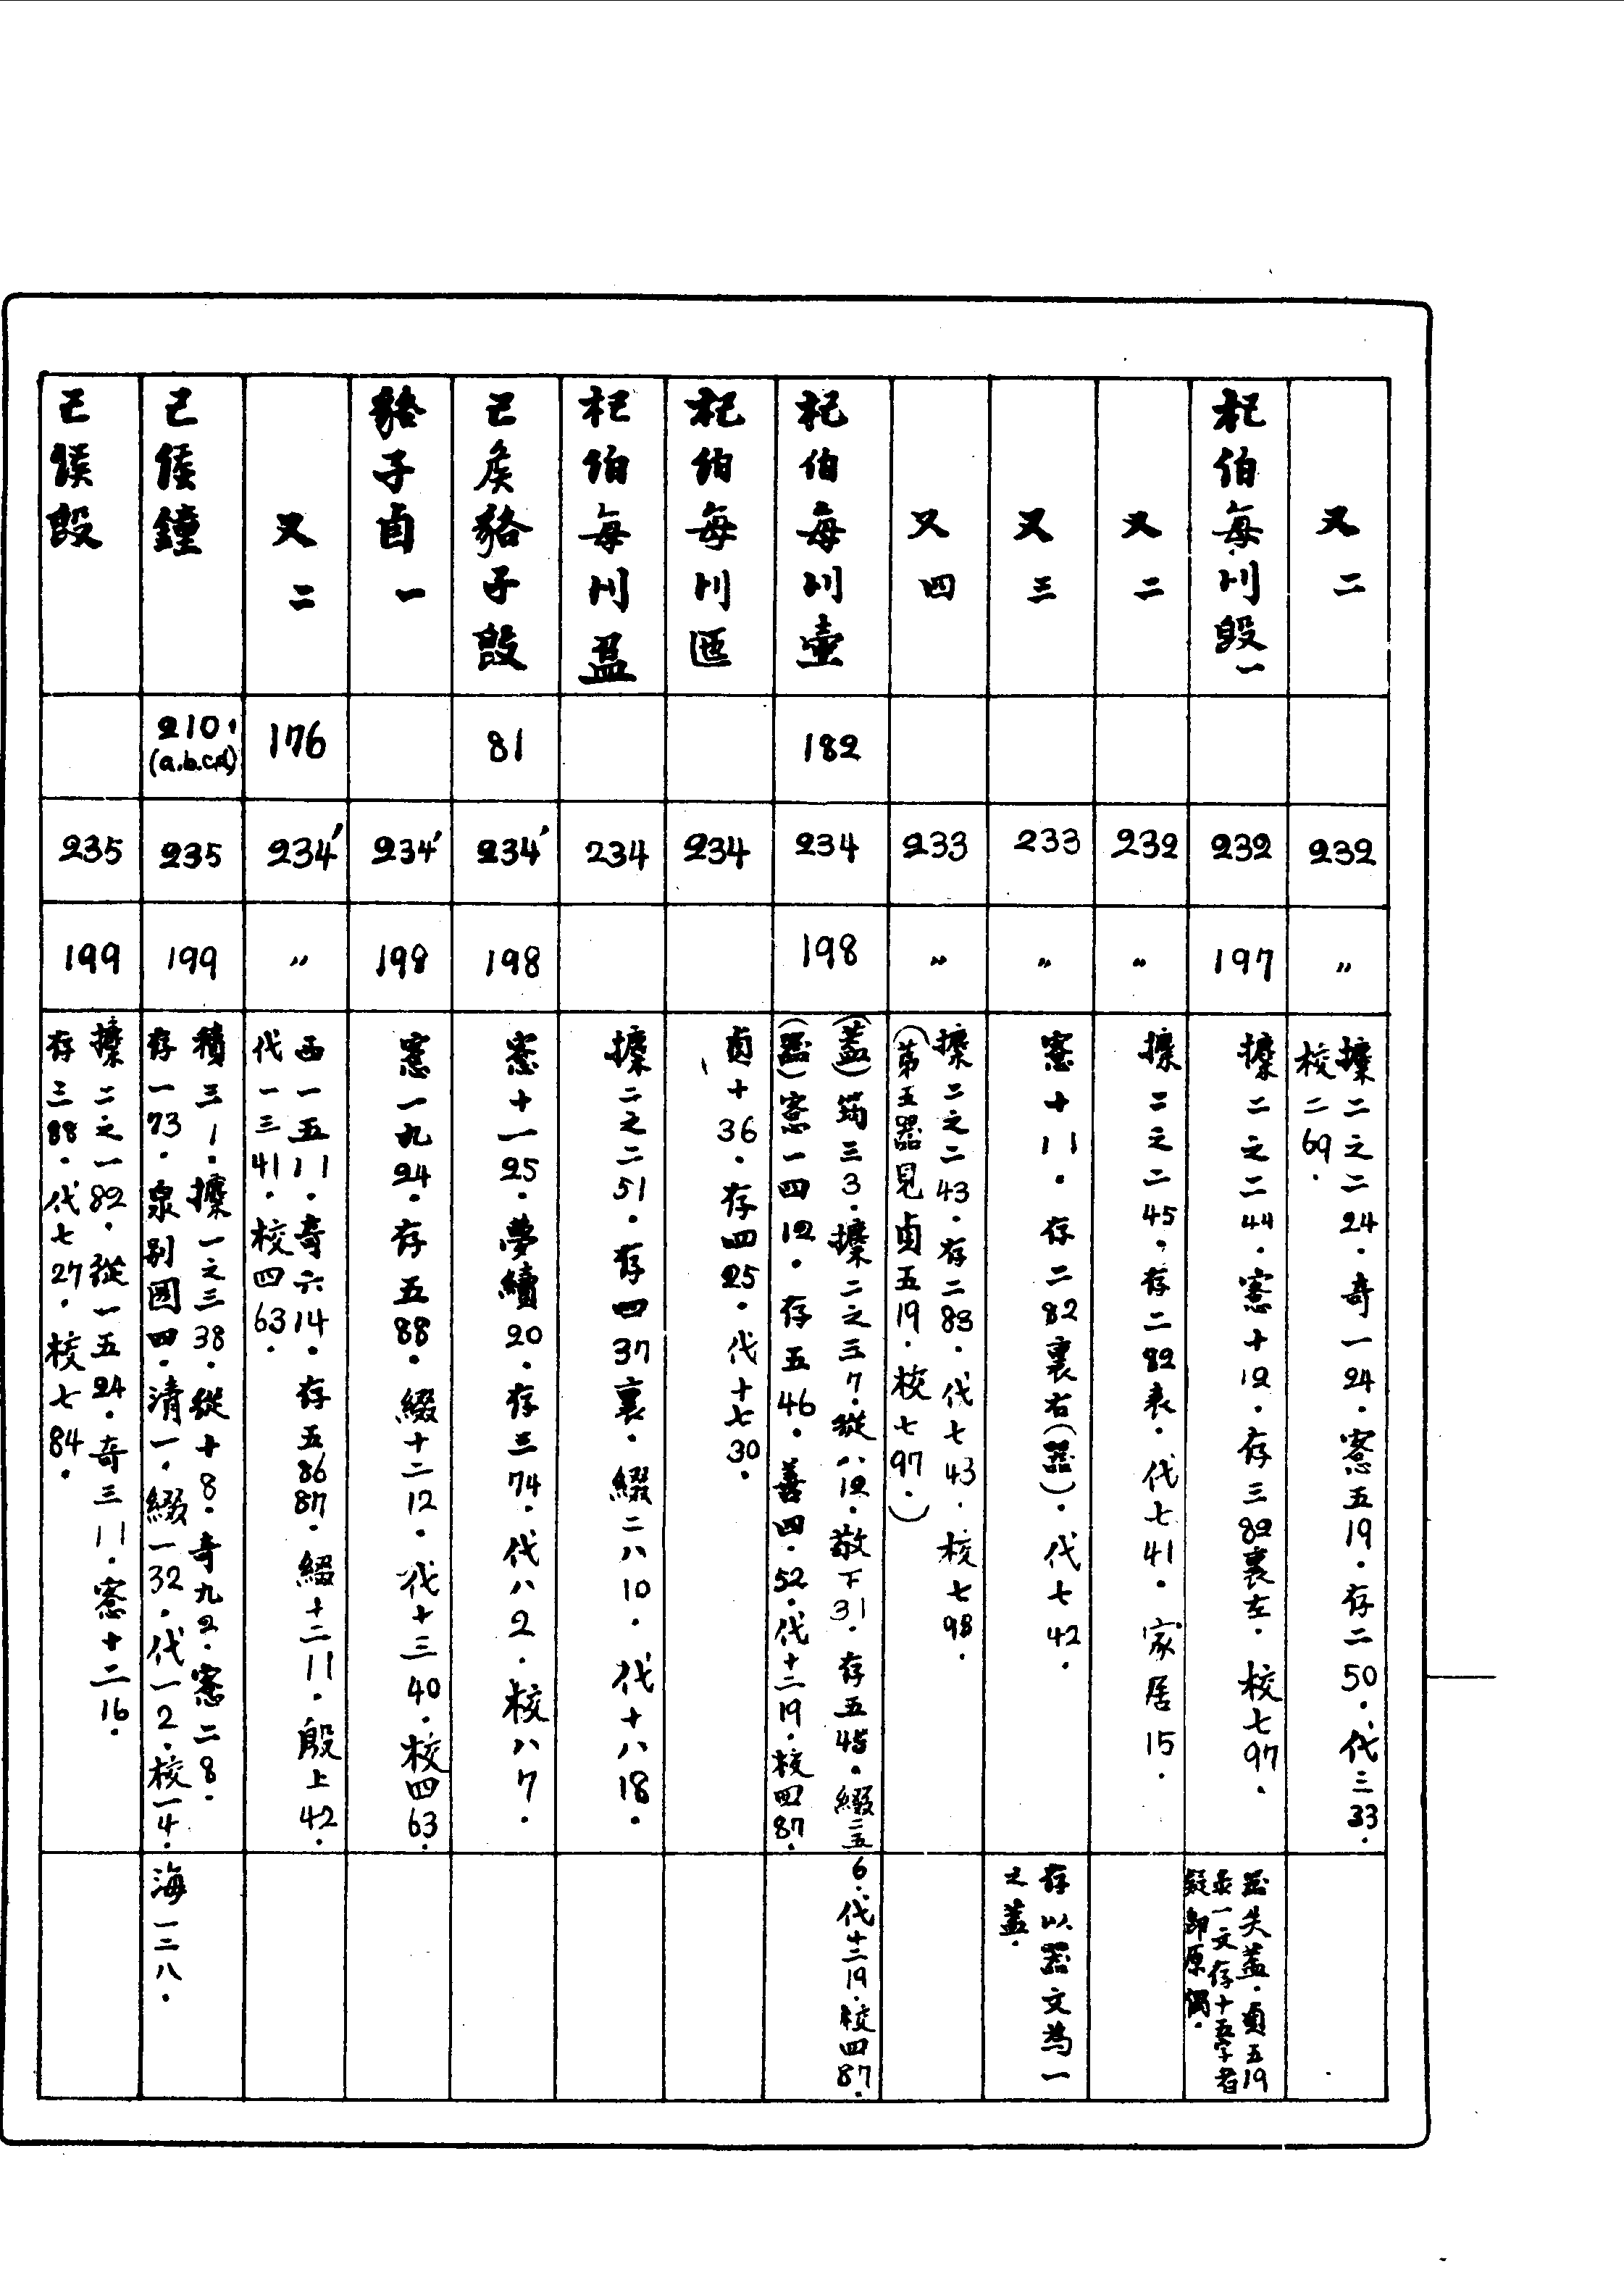 又二
232
〃
攈二之二24．奇一24．愙五19．存二50．代三33．
校二69．
杞伯每刅𣪘一
232
197
攈二之二44．愙十12．存三82裏左．校七97．
器失蓋．貞五19
录一文存十五字者
疑即原偶．
又二
232
〃
攈二之二45．存二82表．代七41．家居15．
又三
233
〃
愙十11．存二82裏右（器）．代七42．
存以器文為一
之蓋．
又四
233
〃
攈二之二43．存二83．代七43．校七98．
（第五器見貞五19．校七97．）
杞伯每刅壺
182
234
198
（蓋）筠三3．攈二之三7．從八12．敬下31．存五45．綴二五6．代十二19．校四87．
（器）愙一四12．存五46．善四．52．代十二19．校四87．
杞伯每刅匜
234
貞十36．存四25．代十七30．
杞伯每刅盁
234
攈二之二51．存四37裏．綴二八10．代十八18．
己矦貉子𣪘
81
234'
198
愙十一25．夢續20．存三74．代八2．校八7．
貉子卣一
234'
198
愙一九24．存五88．綴十二12．代十三40．校四63．
又二
176
234'
〃
西一五11．奇六14．存五86 87．綴十二11．殷上42．
代一三41．校四63．
己侯鐘
210．
(a.b.c.d)
235
199
積三1．攈一之三38．從十8．奇九2．愙二8．
存一73．泉別國四．清一．綴一32．代一2．校一4．海一三八．
己侯𣪘
235
199
攈二之一82．從一五24．奇三11．愙十二16．
存三88．代七27．校七84．